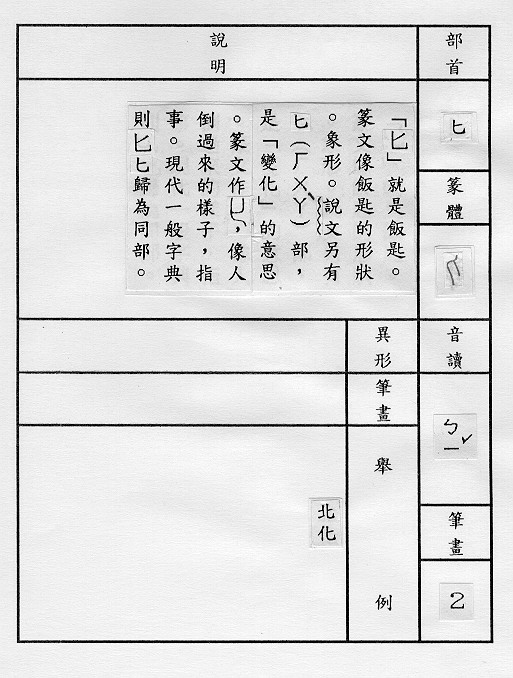 部首
匕
篆體
音讀
ㄅㄧˇ
筆畫
2
說明
「匕」就是飯匙。
篆文像飯匙的形狀
。象形。說文另有
𠤎(ㄏㄨㄚˋ)部,
是「變化」的意思
。篆文作,像人
倒過來的樣子,指
事。現代一般字典
則匕𠤎歸為同部。
異形
筆畫
舉例
北
化